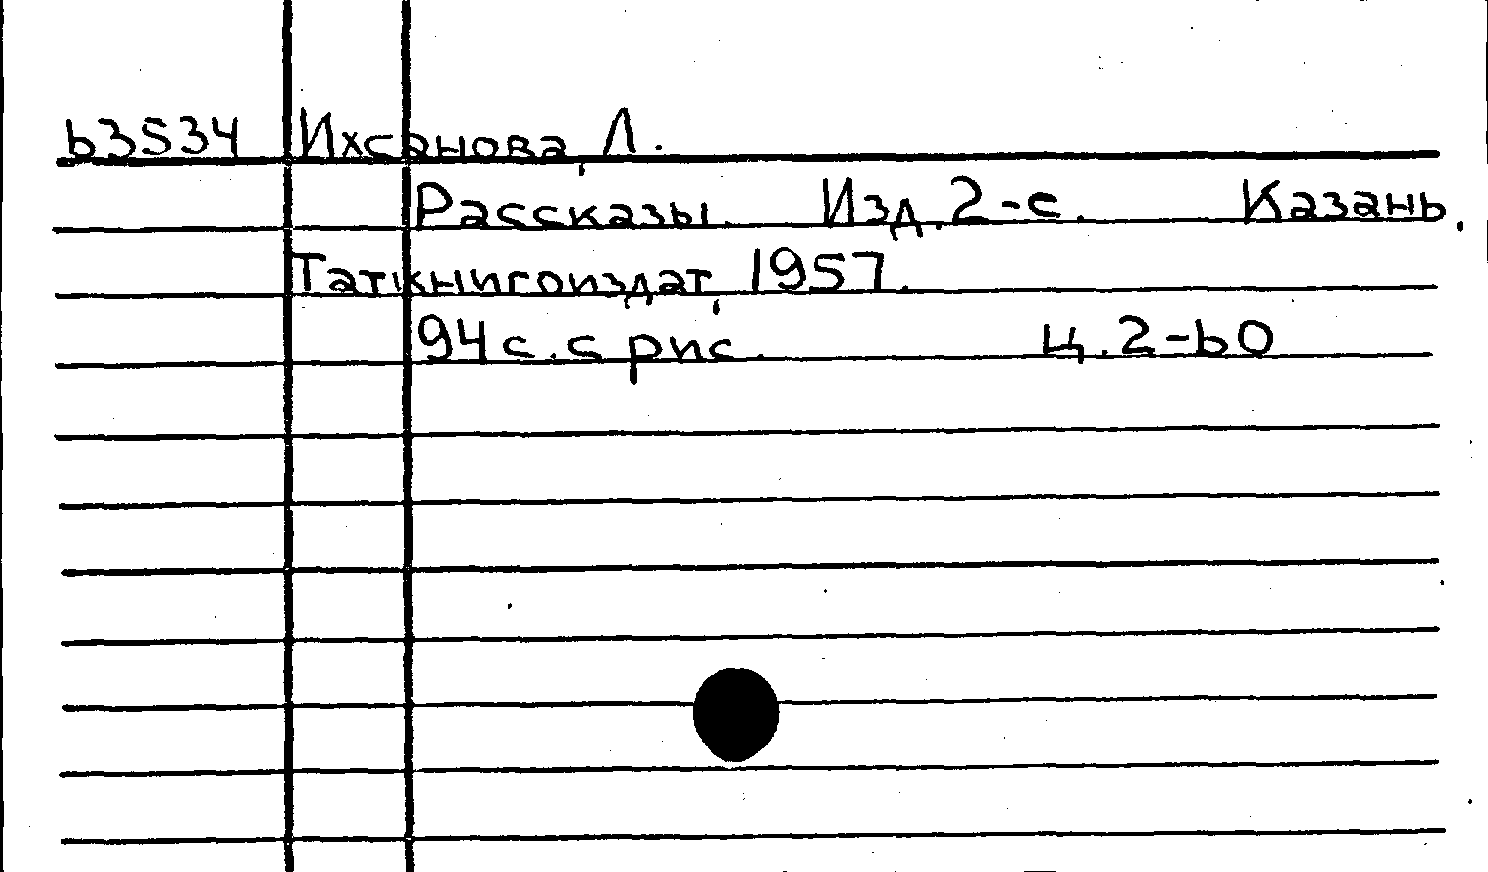 63534 Ихсанова, Л.
Рассказы. Изд. 2-е. Казань,
Таткнигоиздат, 1957.
94 с. с рис. Ц. 2-60